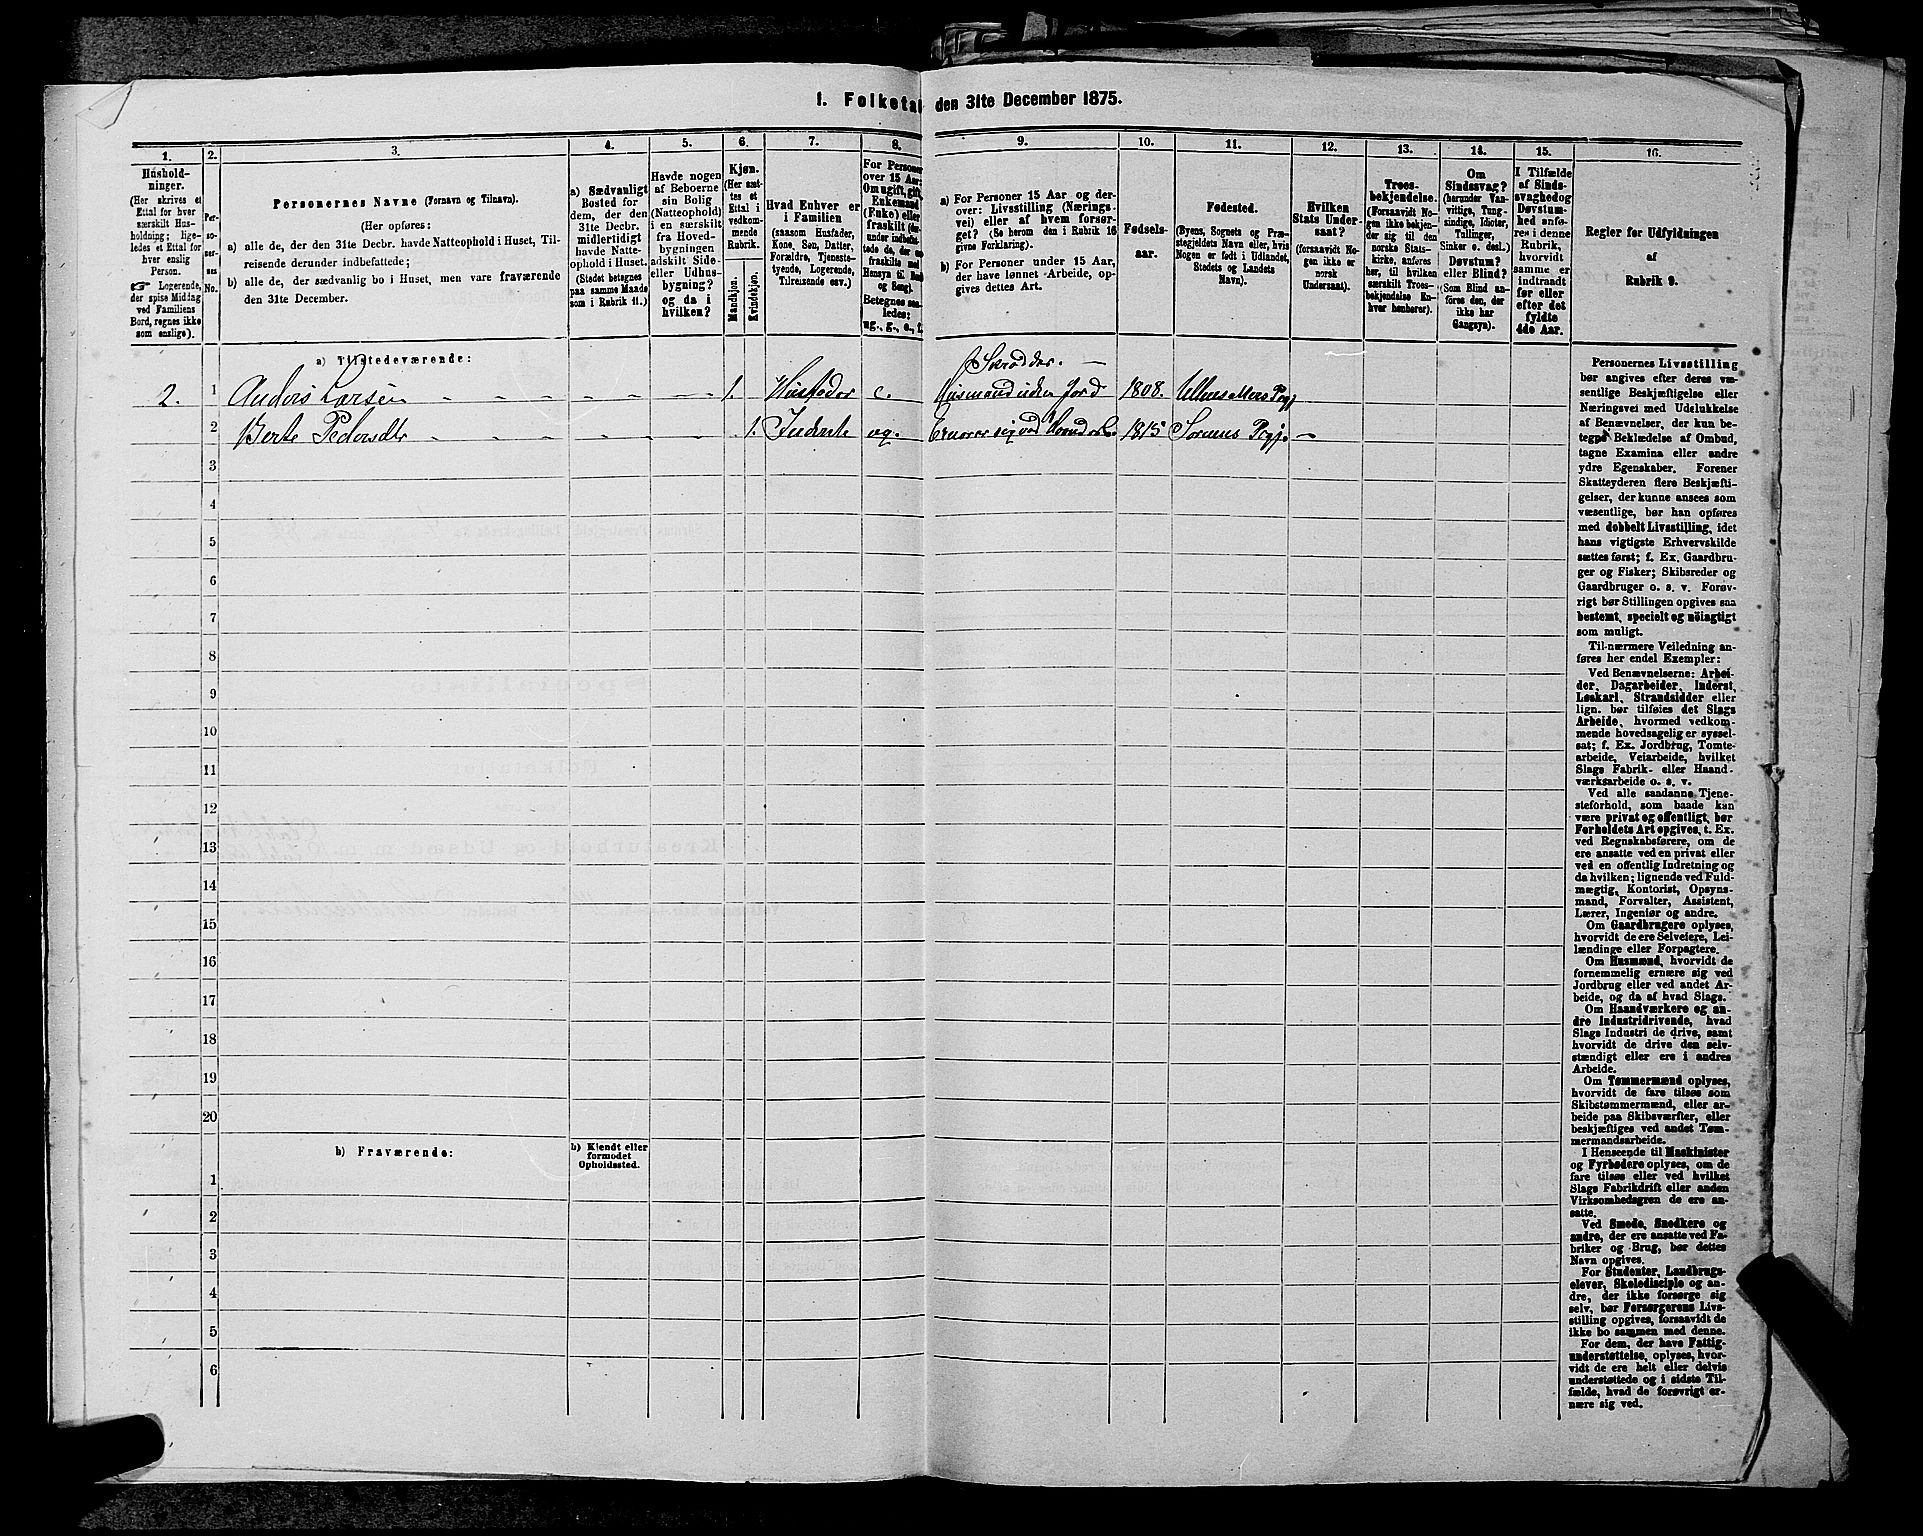 1. Folketal den 31te December 1875.
1. 2. 3. 4. 5. 6. 7. 8. 9. 10. 11. 12. 13. 14. 15. 16.
Hushold-
ninger.
(Her skrives et
Ettal for hver
særskilt Hus-
holdning; lige-
ledes et Ettal for
hver enslig
Person.
☞ Logerende,
der spise Middag
ved Familiens
Bord, regnes ikke
som enslige).
Per-
so-
ner-
nes
No.
Personernes Navne (Fornavn og Tilnavn).
(Her opføres:
a) alle de, der den 31te Decbr. havde Natteophold i Huset, Til-
reisende derunder indbefattede;
b) alle de, der sædvanlig bo i Huset, men vare fraværende
den 31te December.
a) Sædvanligt
Bosted for
dem, der den
31te Decbr.
midlertidigt
havde Natte-
ophold i Huset.
(Stedet betegnes
paa samme Maade
som i Rubrik 11.)
Havde nogen
af Beboerne
sin Bolig
(Natteophold)
i en særskilt
fra Hoved-
bygningen
adskilt Side-
eller Udhus-
bygning?
og da i
hvilken?
Kjøn.
(Her sæt-
tes et
Ettal i
vedkom-
mende
Rubrik.
Mandkjøn.
Kvindekjøn.
Hvad Enhver er
i Familien
(saasom Husfader,
Kone, Søn, Datter,
Forældre, Tjeneste-
tyende, Logerende,
Tilreisende osv.)
For Personer
over 15 Aar:
Om ugift, gift,
Enkemand
(Enke) eller
fraskilt
Betegnes saa-
ledes:
ug., g., e., f.
a) For Personer 15 Aar og der-
over: Livsstilling (Nærings-
vei) eller af hvem forsør-
get? (Se herom den i Rubrik 16
givne Forklaring).
b) For Personer under 15 Aar,
der have lønnet Arbeide, op-
gives dettes Art.
Fødsels-
aar.
Fødested.
(Byens, Sognets og Præ-
stegjeldets Navn eller, hvis
Nogen er født i Udlandet,
Stedets og Landets
Navn).
Hvilken
Stats Under-
saat?
(forsaavidt No-
gen ikke er
norsk
Undersaat).
Troes-
bekjendelse.
(Forsaavidt No-
gen ikke bekjen-
der sig til den
norske Stats-
kirke, anføres
her, til hvilken
særskilt Troes-
bekjendelse En-
hver henhører).
Om
Sindssvag?
(herunder Van-
vittige, Tung-
sindige, Idioter,
Tullinger,
Sinker o. desl.)
Døvstum?
eller Blind?
(Som Blind an-
føres den, der
ikke har
Gangsyn).
I Tilfælde
af Sinds-
svaghed og
Døvstum-
hed anfø-
res i denne
Rubrik,
hvorvidt
samme er
indtraadt
før eller
efter det
fyldte
4de Aar.
Regler for Udfyldningen
af
Rubrik 9.
a) Tilstedeværende:
Skrædder. —
2. 1 Anders Larsen 1. Husfader e. Husmand uden Jord 1808.
2 Berte Pedersdtr 1. ug. 1815
3
4
5
6
7
8
9
10
11
12
13
14
15
16
17
18
19
20
b) Fraværende:
b) Kjendt eller
formodet
Opholdssted.
1
2
3
4
5
6
Personernes Livsstilling
bør angives efter deres væ-
sentlige Beskjæftigelse eller
Næringsvei med Udelukkelse
af Benævnelser, der kun be-
tegne Beklædelse af Ombud,
tagne Examina eller andre
ydre Egenskaber. Forener
Skatteyderen flere Beskjæfti-
gelser, der kunne ansees som
væsentlige, bør han opføres
med dobbelt Livsstilling, idet
hans vigtigste Erhvervskilde
sættes først; f. Ex. Gaardbru-
ger og Fisker; Skibsreder og
Gaardbruger o. s. v. Forøv-
rigt bør Stillingen opgives saa
bestemt, specielt og nöiagtigt
som muligt.
Til nærmere Veiledning an-
føres her endel Exempler:
Ved Benævnelserne: Arbei-
der, Dagarbeider, Inderst,
Løskarl, Strandsidder eller
lign. bør tilføies det Slags
Arbeide, hvormed vedkom-
mende hovedsagelig er syssel-
sat; f. Ex. Jordbrug, Tomte-
arbeide, Veiarbeide, hvilket
Slags Fabrik- eller Haand-
værksarbeide o. s. v.
Ved alle saadanne Tjene-
steforhold, som baade kan
være privat og offentligt, bør
Forholdets Art opgives, t. Ex.
ved Regnskabsførere, om de
ere ansatte ved en privat eller
ved en offentlig Indretning og
da hvilken; lignende ved Fuld-
mægtig, Kontorist, Opsyns-
mand, Forvalter, Assistent,
Lærer, Ingeniør og andre.
Om Gaardbrugere oplyses,
hvorvidt de ere Selveiere, Lei-
lændinge eller Forpagtere.
Om Husmænd, hvorvidt de
fornemmelig ernære sig ved
Jordbrug eller ved andet Ar-
beide, og da af hvad Slags.
Om Haandværkere og an-
dre Industridrivende, hvad
Slags Industri de drive, samt
hvorvidt de drive den selv-
stændigt eller ere i andres
Arbeide.
Om Tømmermænd oplyses,
hvorvidt de fare tilsøs som
Skibstømmermænd, eller ar-
beide paa Skibsværfter, eller
beskjæftiges ved andet Tøm-
mermandsarbeide.
I Henseende til Maskinister
og Fyrbødere oplyses, om de
fare tilsøs eller ved hvilket
Slags Fabrikdrift eller anden
Virksomhedsgren de ere an-
satte.
Ved Smede, Snedkere og
andre, der ere ansatte ved Fa-
briker og Brug, bør dettes
Navn opgives.
For Studenter, Landbrugs-
elever, Skoledisciple og an-
dre, der ikke forsørge sig
selv, bør Forsørgerens Livs-
stilling opgives, forsaavidt de
ikke bo sammen med denne.
For dem, der have Fattig-
understøttelse, oplyses, hvor-
vidt de ere helt eller delvis
understøttede og i sidste Til-
fælde, hvad de forøvrigt er-
nære sig ved.